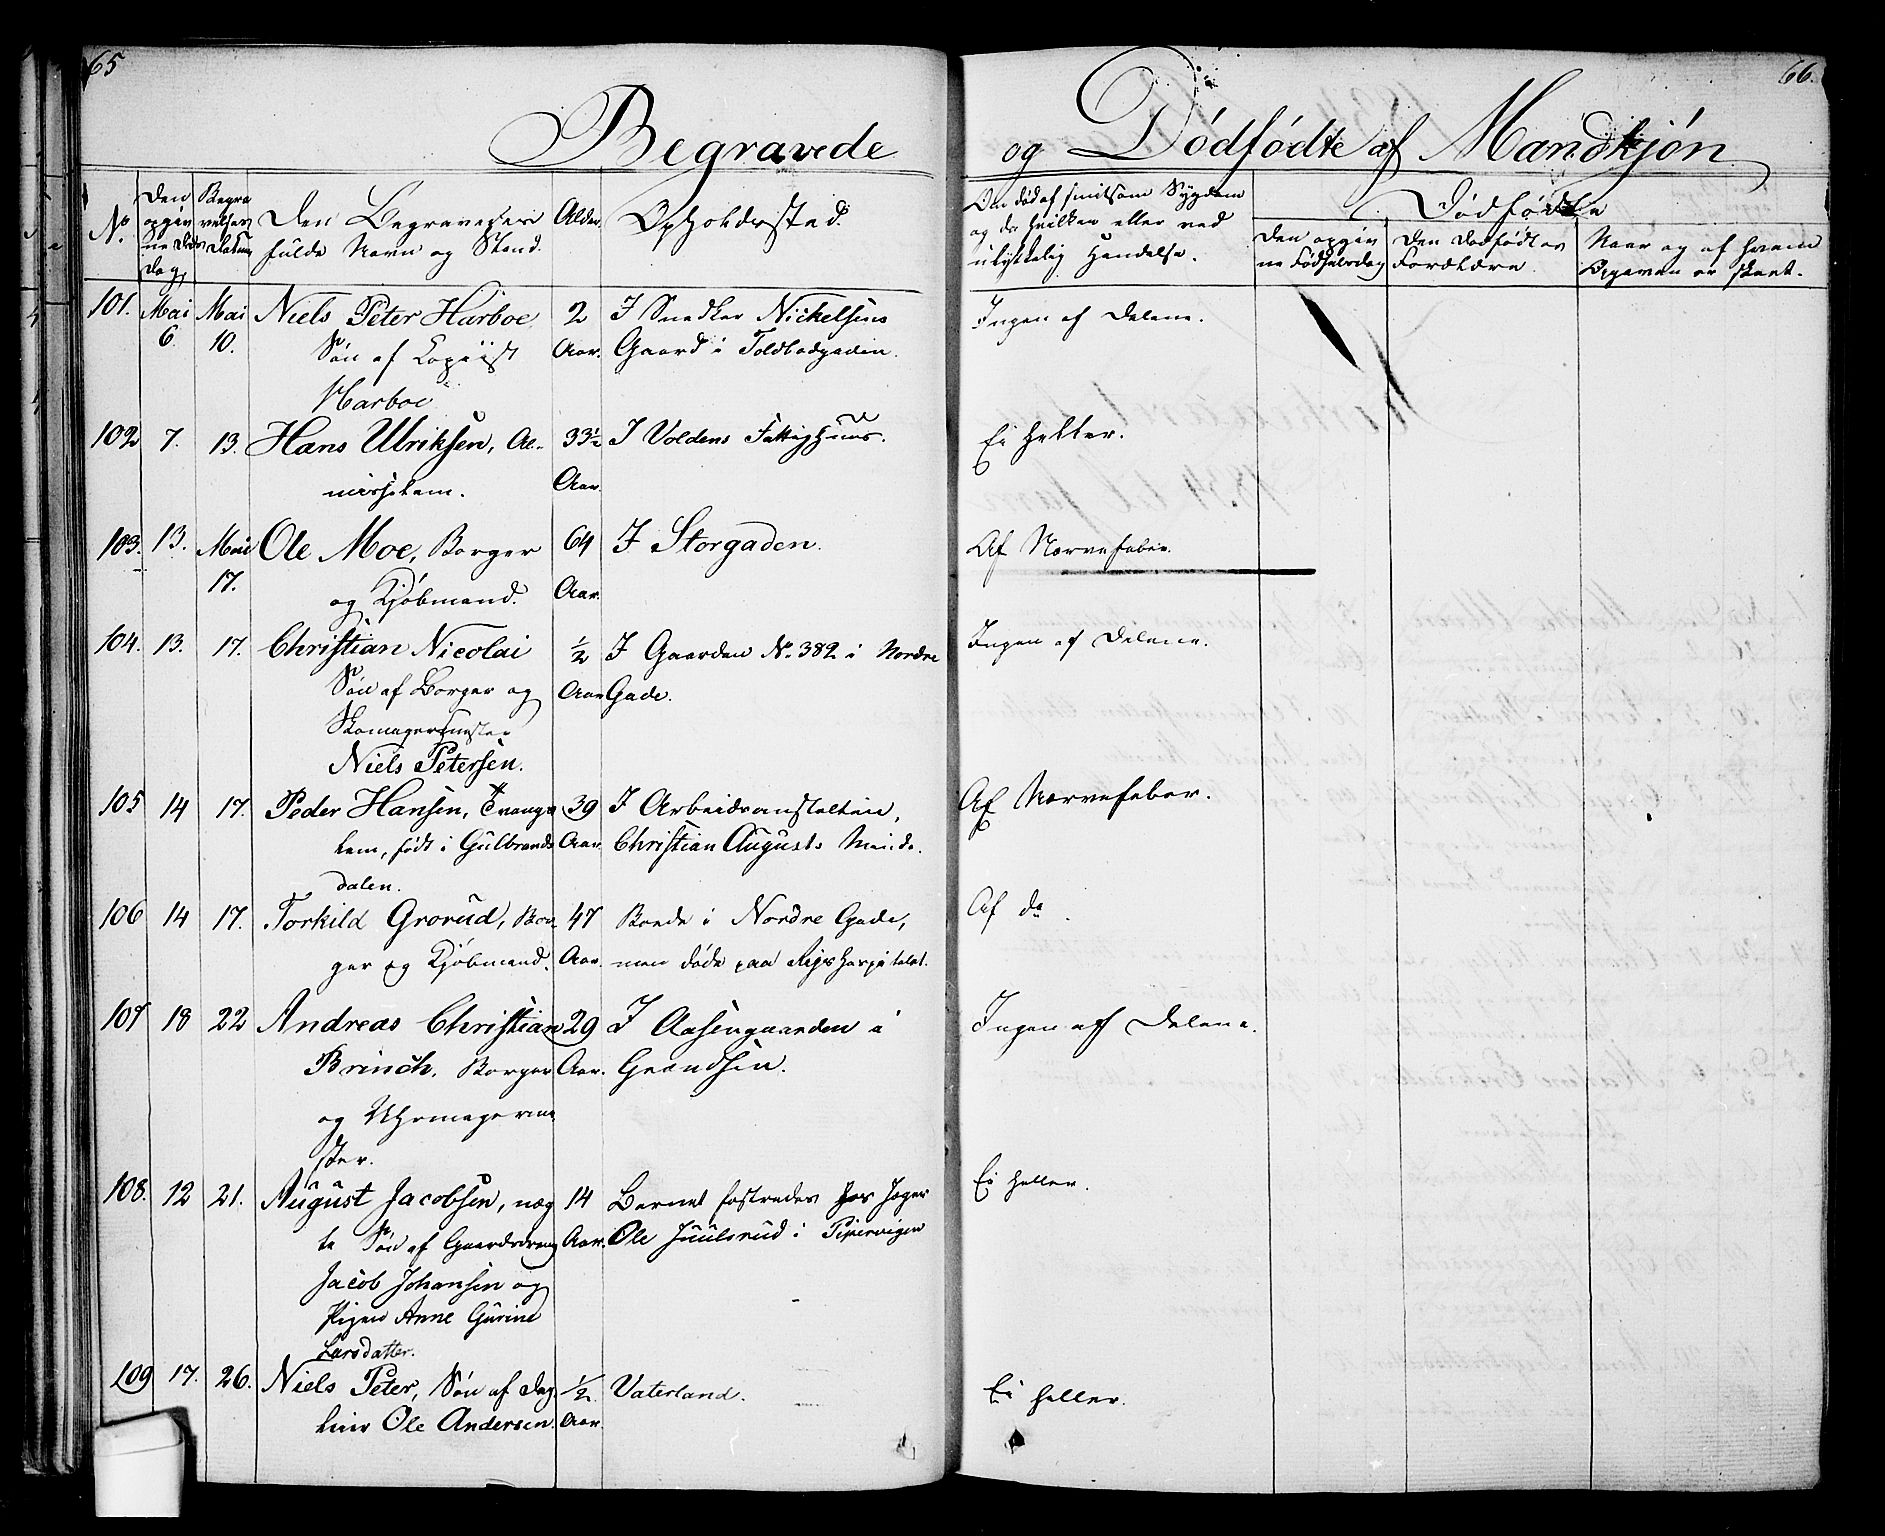 65
Begravede
No.
Den opgivne Døds Dag
Begravelses Datum
Den Begravedes fulde Navn og Stand.
Alder.
Opholdssted.
101. Mai 6. Mai 10. Niels Peter Harboe, 2 I Snedker Nickelsens
Søn af Copiist Aar. Gaard i Toldbodgaden.
Harboe
102 7. 13. Hans Ulriksen, Al- 33½ I Voldens Fattighuus.
misselem. Aar.
103. 13. Mai 17. Ole Moe, Borger 64 I Storgaden.
og Kjøbmand. Aar.
104. 13. 17. Christian Nicolai ½ I Gaarden No. 382 i Nordre
Søn af Borger og Aar Gade.
Skomagermester
Niels Petersen.
105 14 17. Peder Hansen, Tvangs 39 I Arbeidsanstalten,
lem, født i Gulbrands Aar. Christian Augusts Minde.
dalen.
106 14 17. Torkild Grorud, Bor- 47 Boede i Nordre Gade,
ger og Kjøbmand. Aar. men døde paa Rigshospitalet.
107 18 22 Andreas Christian 29 I Aasengaarden i
Brinch, Borger Aar. Grændsen.
og Uhrmagerme
ster.
108. 12 21. August Jacobsen, uæg 14 Barnet fostredes hos Jøger
te Søn af Gaardsdreng Aar. Ole Juulsrud i Pipervigen
Jacob Johansen og
Pigen Anne Gurine
Larsdatter.
109 17. 26. Niels Peter, Søn af Dag ½ Vaterland.
leier Ole Andersen. Aar.
66.
og Dødfødte af Mandkjøn
Om død af smitsom Sygdom
og da hvilken eller ved
ulykkelig Hændelse.
Dødfødte
Den opgiv
ne Fødselsdag
Den Dødfødtes
Forældre.
Naar og af hvem
Begjæven er skeet.
Ingen af Delene.
Ei heller.
Af Nervefeber.
Ingen af Delene.
Af Nervefeber.
Af do.
Ingen af Delene.
Ei heller.
Ei heller.